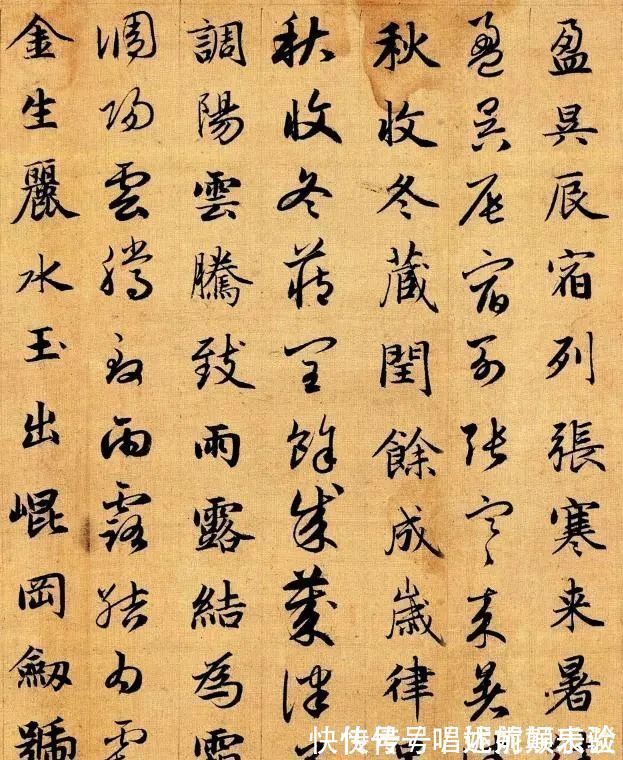 盈昃辰宿列張寒来暑
盈昃辰宿列張寒来暑
秋收冬蔵閏餘成歲律
秋收冬藏閏餘成歲律
調陽雲騰致雨露結為霜
調陽雲騰致雨露結為霜
金生麗水玉出崐岡劔號
快传号